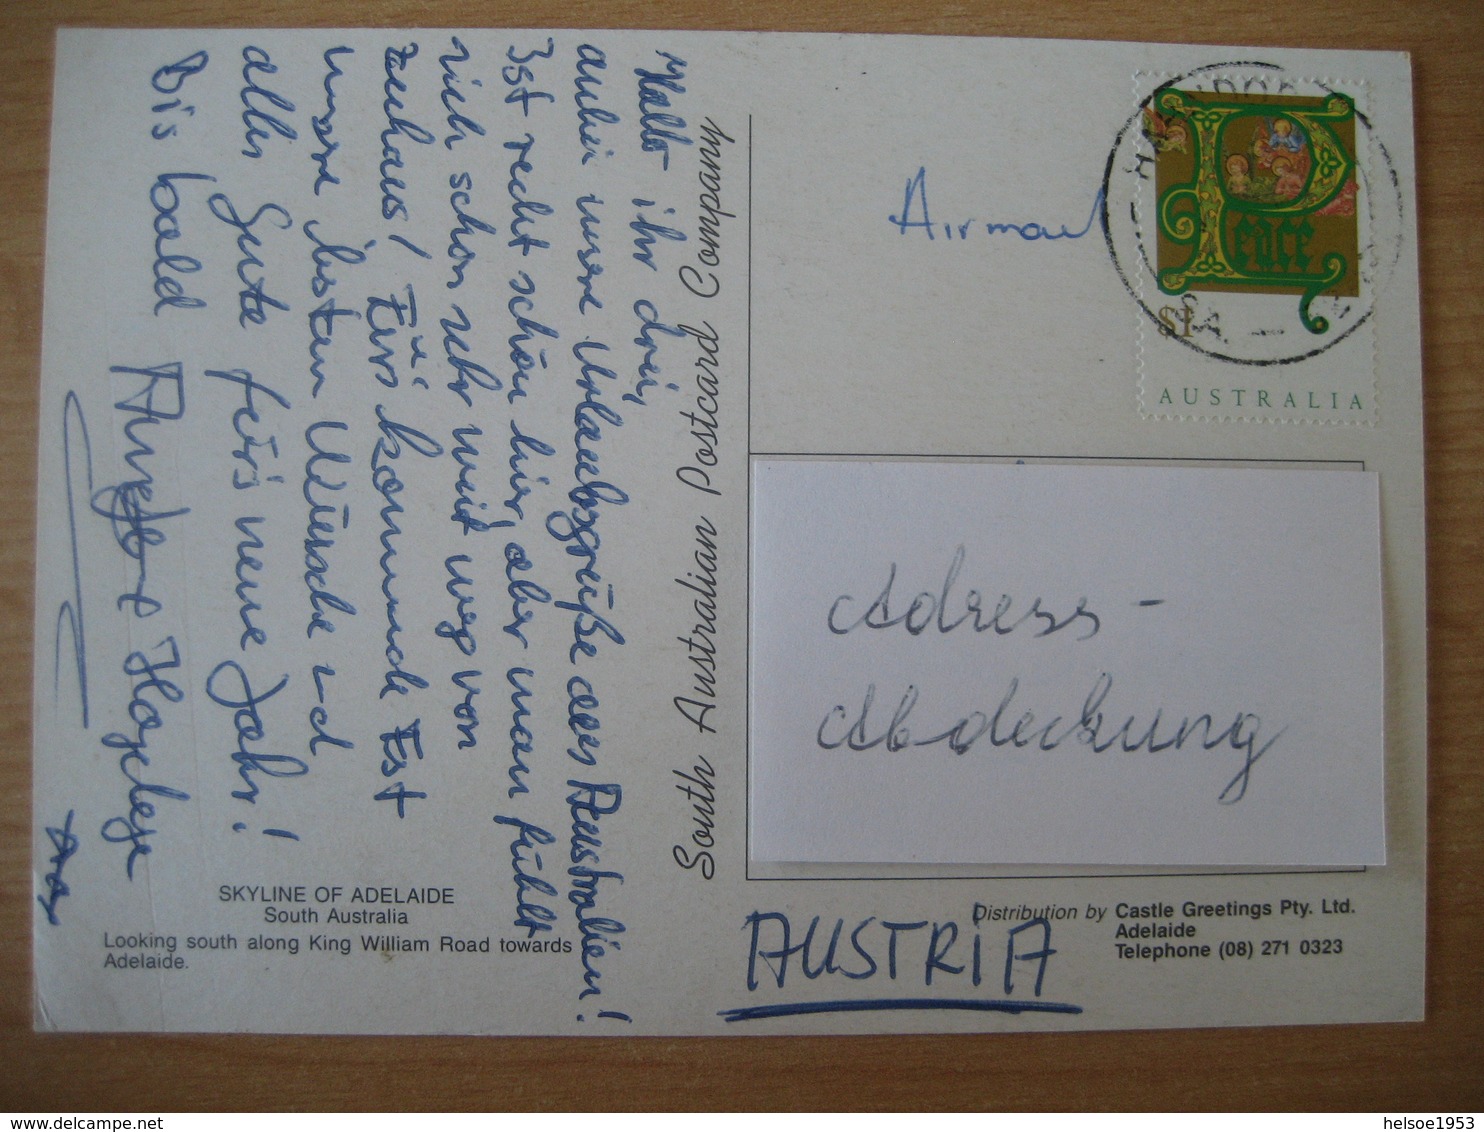 Hallo ihr drei,
anbei unsre Urlaubsgrüße aus Australien!
Ist recht schön hier, aber man fühlt
sich schon sehr weit weg von
zuhaus! Fürs kommende Fest
unsre besten Wünsche und
alles Gute fürs neue Jahr!
Bis bald
South Australian Postcard Company
SKYLINE OF ADELAIDE
South Australia
Looking south along King William Road towards
Adelaide.
Airmail
Peace
$1
AUSTRALIA
S.A.
Adress-
Abdeckung
Distribution by Castle Greetings Pty. Ltd.
Adelaide
Telephone (08) 271 0323
AUSTRIA
helsoe1953